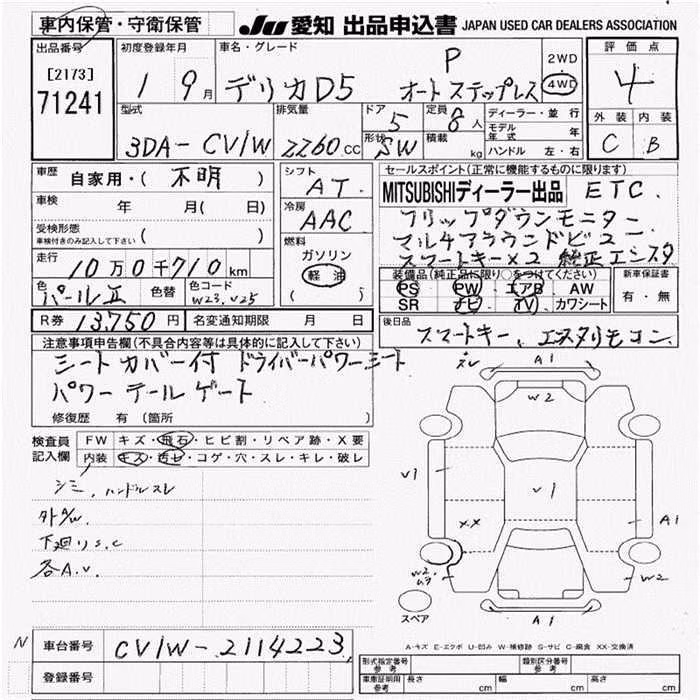 車内保管・守衛保管 JU 愛知 出品申込書 JAPAN USED CAR DEALERS ASSOCIATION
出品番号 初度登録年月 車名・グレード 評価点
[2173]
71241
1 9月 デリカD5 P
オートステップレス 2WD
4WD 4
型式 排気量 ドア 定員 ディーラー・並行 外装 内装
3DA-CV1W 2260cc 5 8人 モデル年式 年 C B
形状 SW 積載 kg ハンドル 左・右
車歴 自家用・( 不明 ) シフト AT. セールスポイント(正常に機能するものに限ります)
車検 年 月( 日) 冷房 AAC MITSUBISHIディーラー出品 ETC.
受検形態 ( ) フリップダウンモニター
車検付きのみ記入して下さい 燃料 マルチアラウンドビュー
走行 10万0千710km ガソリン スマートキー×2 純正エンスタ
軽油 装備品(純正品に限り○をつけてください) 新車保証書
色 パールII 色替 色コード W23.V25 ( 5 ) PS PW エアB AW 有・無
SR ナビ TV カワシート
R券 13,750円 名変通知期限 月 日 後日品 スマートキー、エンスタリモコン.
注意事項申告欄(不具合内容等は具体的に記入して下さい)
シートカバー付 ドライバーパワーシート
パワーテールゲート
修復歴 有 (箇所 )
検査員 FW キズ・飛石・ヒビ割・リペア跡・X要
記入欄 内装 キズ・汚セ・コゲ・穴・スレ・キレ・破レ
シミ、ハンドルスレ
外A/W.
下廻りS.C
各A.U.
スレ A1
W2
V1
V1
XX
A1
W2
W2
A1
スペア
A-キズ E-エクボ U-凹み W-補修跡 S-サビ C-腐食 XX-交換済
N 車台番号 CV1W-2114223
登録番号
形式指定番号 参考 類別区分番号 参考
車庫証明用 参考 長さ cm 幅 cm 高さ cm